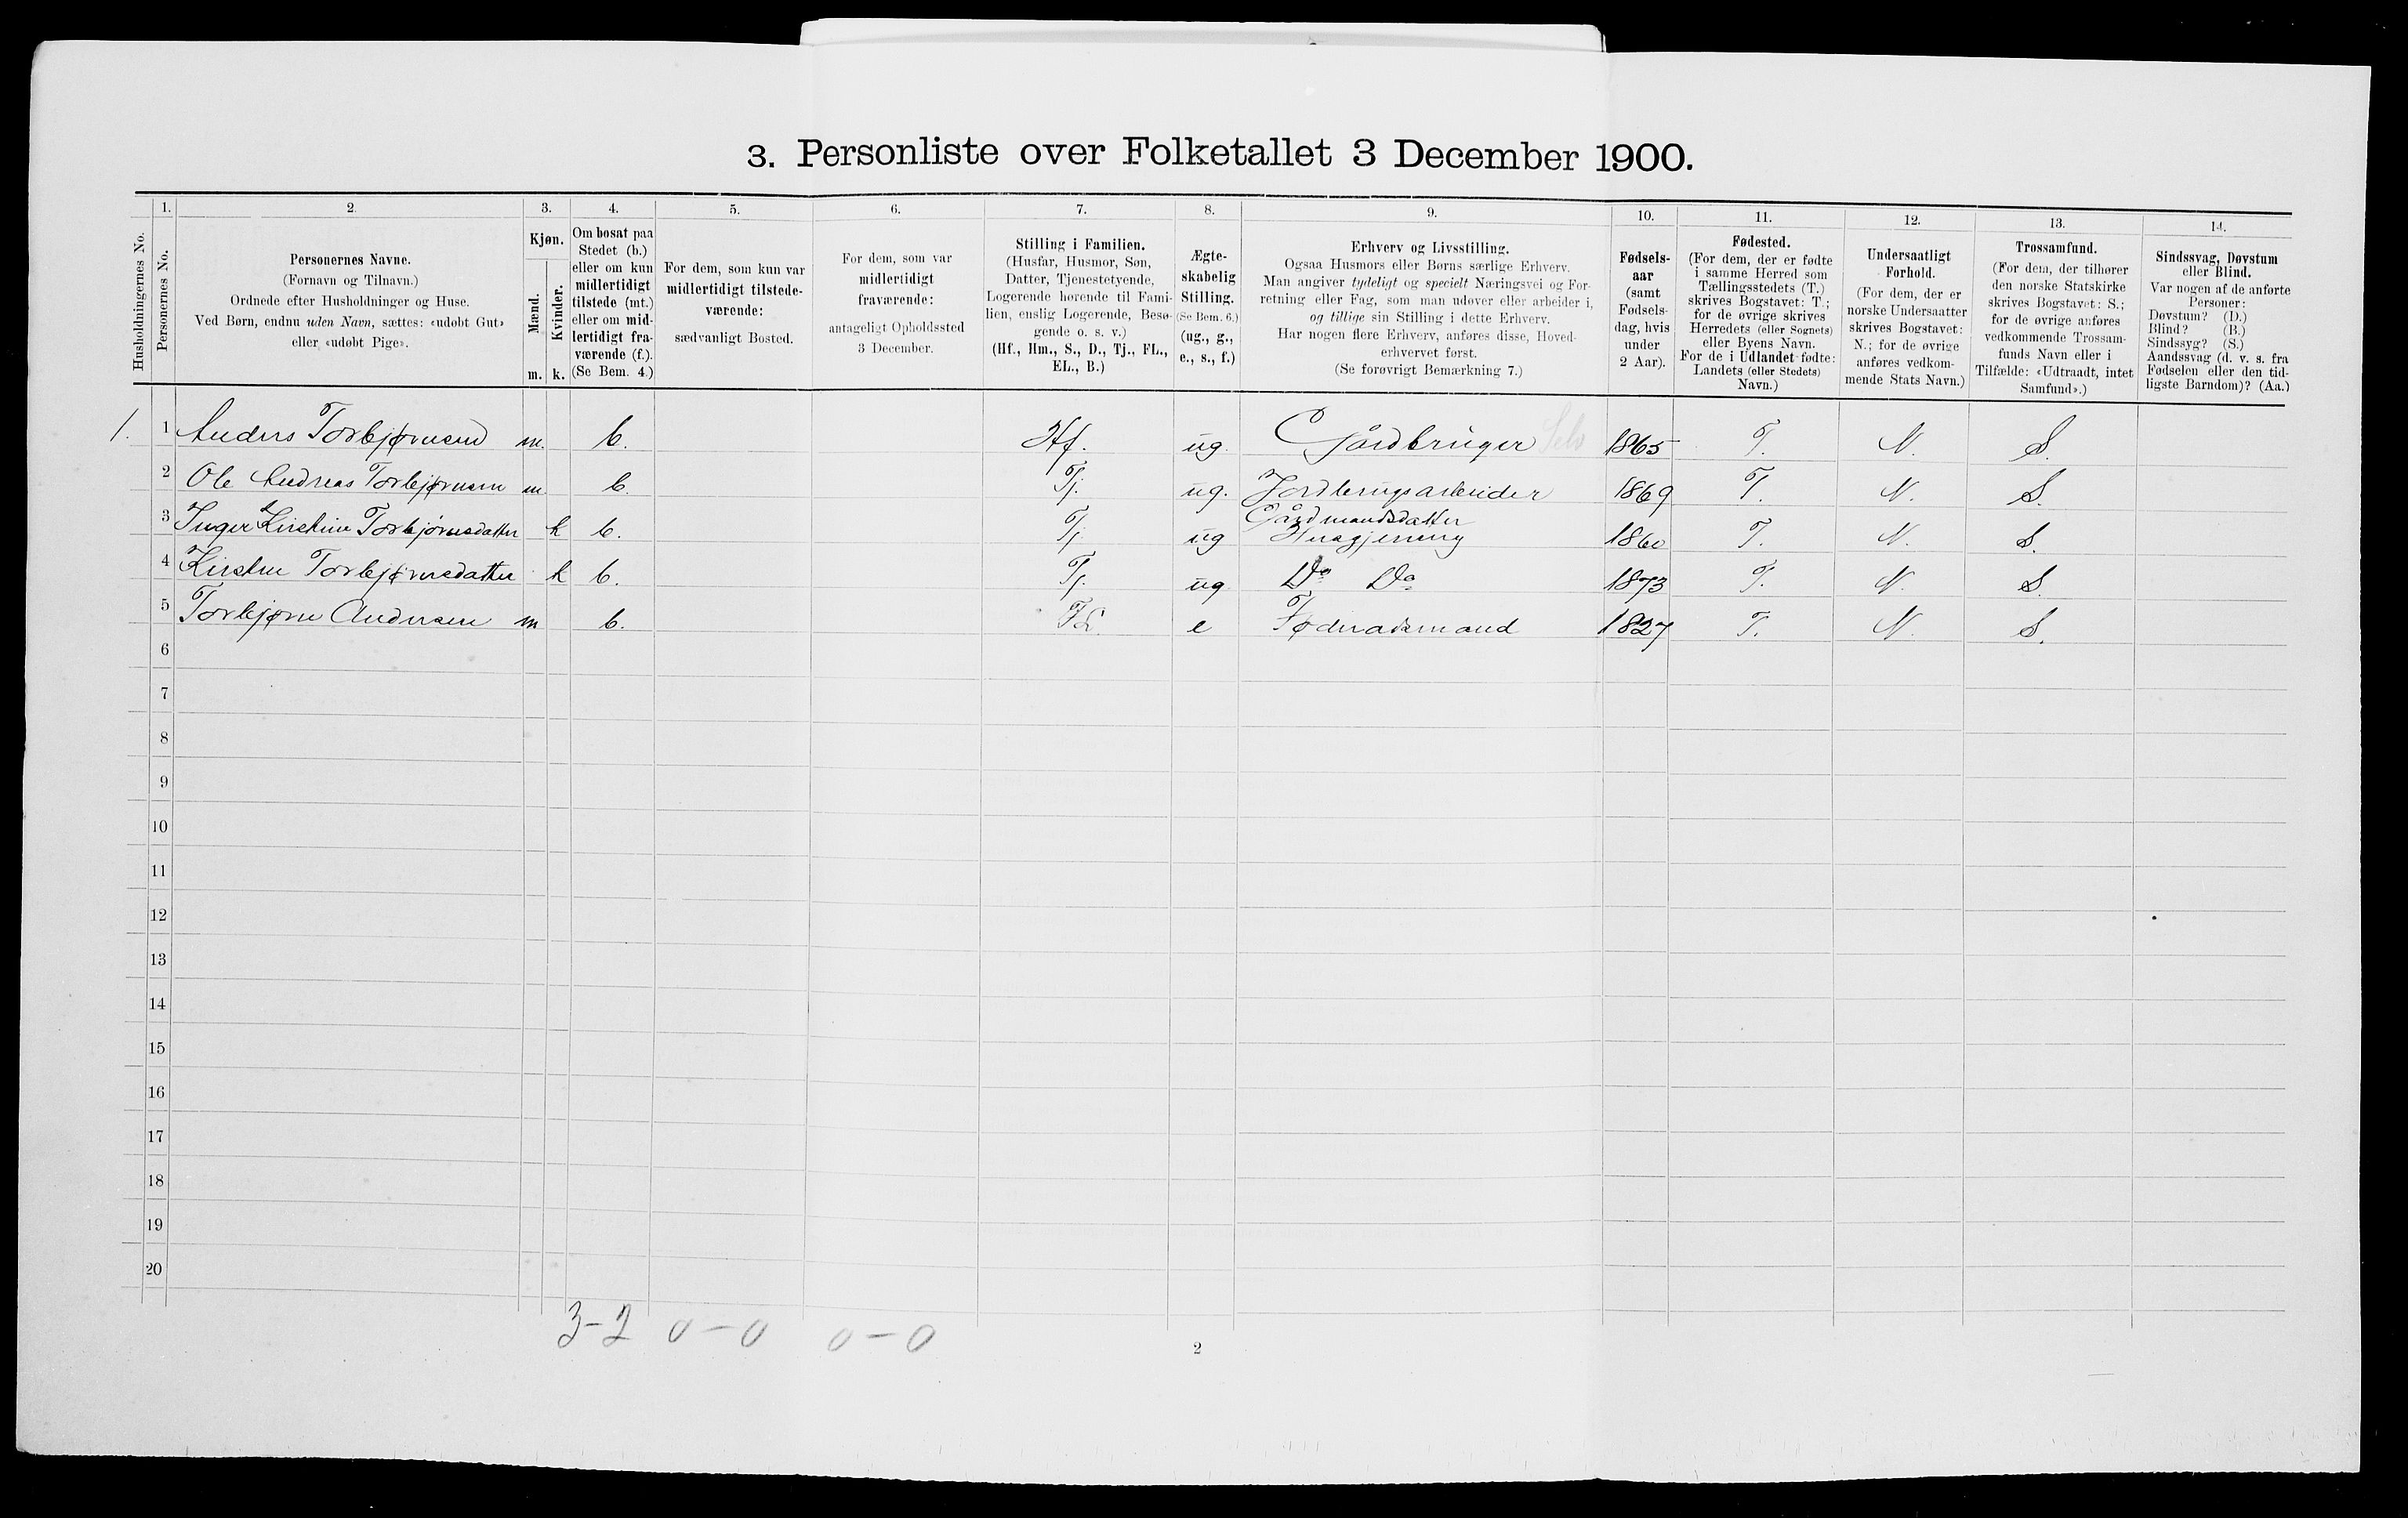 3. Personliste over Folketallet 3 December 1900.
Husholdningernes No.
1.
Personernes No.
2.
Personernes Navne.
(Fornavn og Tilnavn.)
Ordnede efter Husholdninger og Huse.
Ved Børn, endnu uden Navn, sættes: «udøbt Gut»
eller «udøbt Pige».
3.
Kjøn.
Mænd.
m.
Kvinder.
k.
4.
Om bosat paa
Stedet (b.)
eller om kun
midlertidigt
tilstede (mt.)
eller om mid-
lertidigt fra-
værende (f.).
(Se Bem. 4.)
5.
For dem, som kun var
midlertidigt tilstede-
værende:
sædvanligt Bosted.
6.
For dem, som var
midlertidigt
fraværende:
antageligt Opholdssted
3 December.
7.
Stilling i Familien.
(Husfar, Husmor, Søn,
Datter, Tjenestetyende,
Logerende hørende til Fami-
lien, enslig Logerende, Besø-
gende o. s. v.)
(Hf., Hm., S., D., Tj., FL.,
EL., B.)
8.
Ægte-
skabelig
Stilling.
(Se Bem. 6.)
(ug., g.,
e., s., f.)
9.
Erhverv og Livsstilling.
Ogsaa Husmors eller Børns særlige Erhverv.
Man angiver tydeligt og specielt Næringsvei og For-
retning eller Fag, som man udøver eller arbeider i,
og tillige sin Stilling i dette Erhverv.
Har nogen flere Erhverv, anføres disse, Hoved-
erhvervet først.
(Se forøvrigt Bemærkning 7.)
10.
Fødsels-
aar
(samt
Fødsels-
dag, hvis
under
2 Aar).
11.
Fødested.
(For dem, der er fødte
i samme Herred som
Tællingsstedets (T.)
skrives Bogstavet: T.;
for de øvrige skrives
Herredets (eller Sognets)
eller Byens Navn.
For de i Udlandet fødte:
Landets (eller Stedets)
Navn.)
12.
Undersaatligt
Forhold.
(For dem, der er
norske Undersaatter
skrives Bogstavet:
N.; for de øvrige
anføres vedkom-
mende Stats Navn.)
13.
Trossamfund.
(For dem, der tilhører
den norske Statskirke
skrives Bogstavet: S.;
for de øvrige anføres
vedkommende Trossam-
funds Navn eller i
Tilfælde: «Udtraadt, intet
Samfund».)
14.
Sindssvag, Døvstum
eller Blind.
Var nogen af de anførte
Personer:
Døvstum? (D.)
Blind? (B.)
Sindssyg? (S.)
Aandssvag (d. v. s. fra
Fødselen eller den tid-
ligste Barndom)? (Aa.)
1. 1 Anders Torbjørnsen m. b. Hf. ug. Gårdbruger Selv 1865 T. N. S.
2 Ole Andreas Torbjørnsen m b. Tj. ug. Jordbrugsarbeider 1869 T. N. S.
3 Inger Kirstine Torbjørnsdatter k b. Tj. ug Gårdmandsdatter
Husgjerning 1860 T. N. S.
4 Kirstine Torbjørnsdatter k b. Tj. ug Do Do 1873 T. N. S.
5 Torbjørn Andersen m b. FL. e Føderadsmand 1827 T. N. S.
6
7
8
9
10
11
12
13
14
15
16
17
18
19
20
3-2 0-0 0-0
2